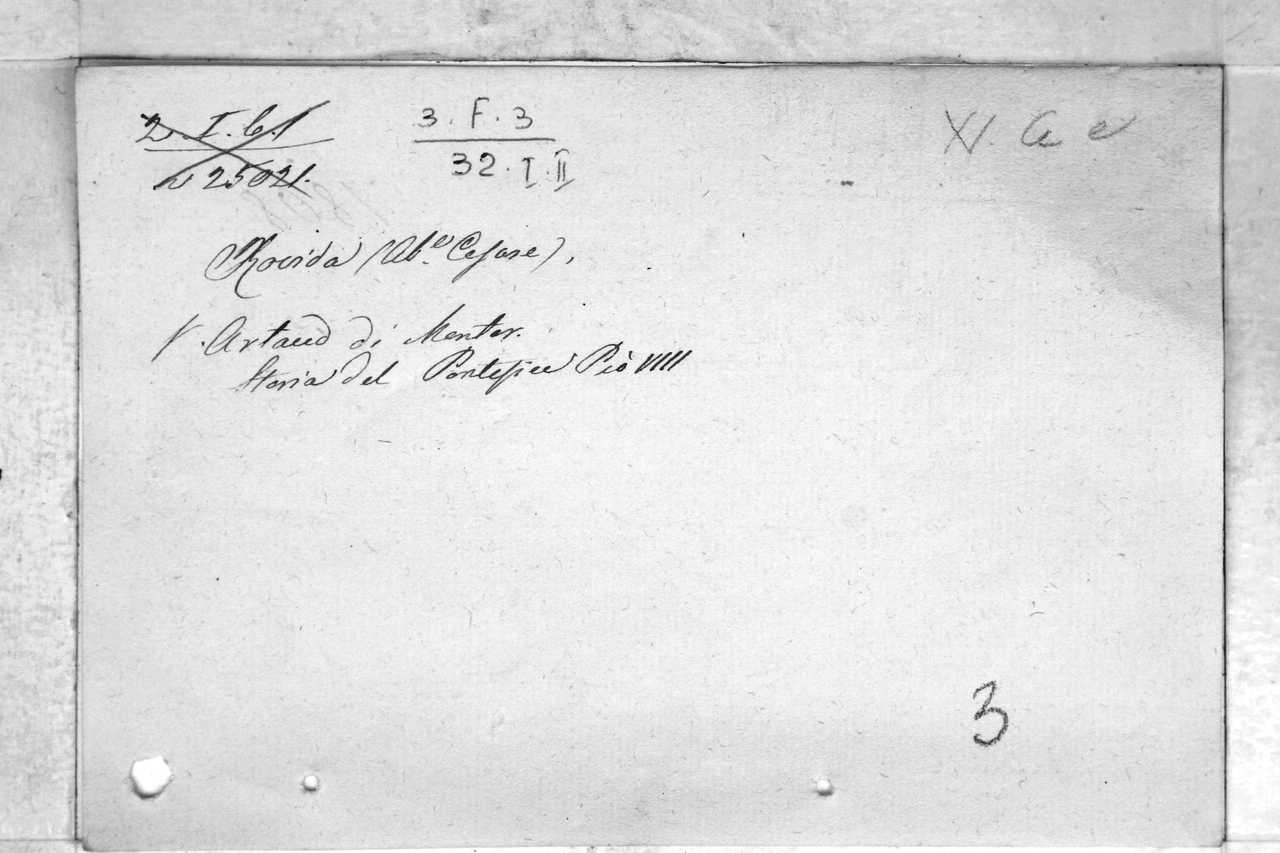 2. I. 6.1
25021.
3. F. 3
32. I. II.
Rovida (Ab.e Cesare),
V. Artaud di Mentor.
Storia del Pontefice Pio VIIII
3